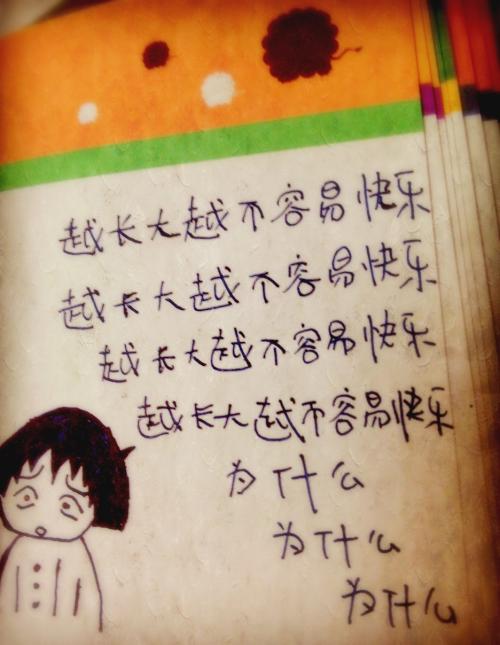 越长大越不容易快乐
越长大越不容易快乐
越长大越不容易快乐
越长大越不容易快乐
为什么
为什么
为什么